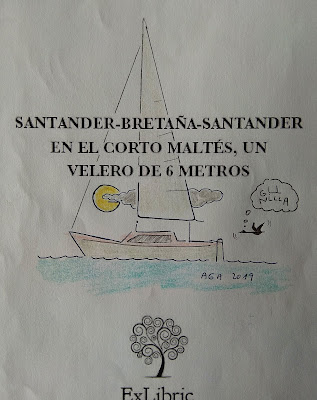 SANTANDER-BRETAÑA-SANTANDER
EN EL CORTO MALTÉS, UN
VELERO DE 6 METROS
AGA 2019
ExLibric